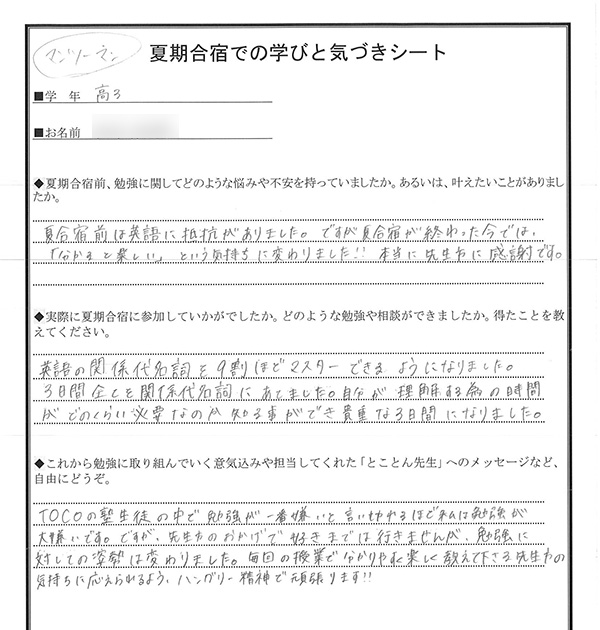 マンツーマン
夏期合宿での学びと気づきシート
■学 年 高3
■お名前
◆夏期合宿前、勉強に関してどのような悩みや不安を持っていましたか。あるいは、叶えたいことがありまし
たか。
夏合宿前は英語に抵抗がありました。ですが夏合宿が終わった今では、
「分かると楽しい」という気持ちに変わりました!! 本当に先生方に感謝です。
◆実際に夏期合宿に参加していかがでしたか。どのような勉強や相談ができましたか。得たことを教
えてください。
英語の関係代名詞を9割ほどマスターできるようになりました。
3日間全てを関係代名詞にあてました。自分が理解する為の時間
がどのくらい必要なのか知る事ができ貴重な3日間になりました。
◆これから勉強に取り組んでいく意気込みや担当してくれた「とことん先生」へのメッセージなど、
自由にどうぞ。
TOCOの塾生徒の中で勉強が一番嫌いと言い切れるほど私は勉強が
大嫌いです。ですが、先生方のおかげで好きまでは行きませんが、勉強に
対しての姿勢は変わりました。毎回の授業で分かりやすく楽しく教えて下さる先生方の
気持ちに応えられるよう、ハングリー精神で頑張ります!!